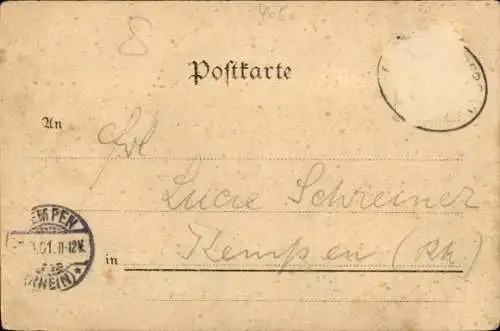 Postkarte
An
Frl
Lucie Schreiner
in Kempen (Rh)
KEMPEN
.01. 11-12V.
(RHEIN) *